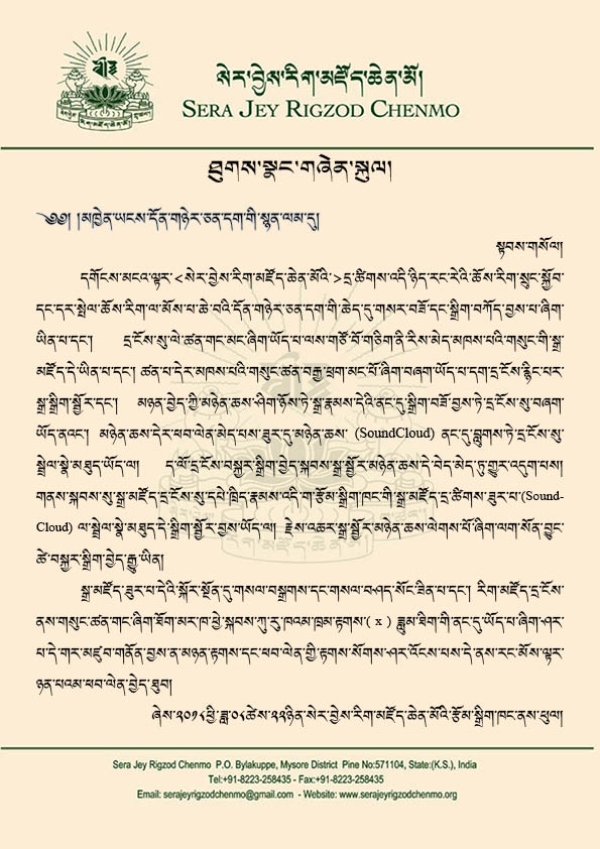 སེར་བྱེས་རིག་མཛོད་ཆེན་མོ།
SERA JEY RIGZOD CHENMO
ཐུགས་སྣང་གཞེན་སྐུལ།
༄༅། །མཁྱེན་ཡངས་དོན་གཉེར་ཅན་དག་གི་སྙན་ལམ་དུ།
སྟབས་གསོལ།
དགོངས་མངའ་ལྟར་<སེར་བྱེས་རིག་མཛོད་ཆེན་མོའི་>དྲ་ཚིགས་འདི་ཉིད་རང་རེའི་ཆོས་རིག་སྲུང་སྐྱོབ་
དང་དར་སྤེལ་ཆོས་རིག་ལ་མོས་པ་ཆེ་བའི་དོན་གཉེར་ཅན་དག་གི་ཆེད་དུ་གསར་བཟོ་དང་སྒྲིག་བཀོད་བྱས་པ་ཞིག་
ཡིན་པ་དང་། དྲ་ངོས་སུ་ལེ་ཚན་གང་མང་ཞིག་ཡོད་པ་ལས་གཙོ་བོ་གཅིག་ནི་རིས་མེད་མཁས་པའི་གསུང་གི་སྒྲ་
མཛོད་དེ་ཡིན་པ་དང་། ཚན་པ་དེར་མཁས་པའི་གསུང་ཚན་བརྒྱ་ཕྲག་མང་པོ་ཞིག་བཞག་ཡོད་པ་དག་དྲ་ངོས་རྙིང་པར་
སྒྲ་སྒྲིག་སྦྱོར་དང་། མཉན་བྱེད་ཀྱི་མཉེན་ཆས་ཤིག་ཉོས་ཏེ་སྒྲ་རྣམས་དེའི་ནང་དུ་སྒྲིག་བཟོ་བྱས་ཏེ་དྲ་ངོས་སུ་བཞག་
ཡོད་ནའང་། མཉེན་ཆས་དེར་ཕབ་ལེན་མེད་པས་ཟུར་དུ་མཉེན་ཆས་ (SoundCloud) ནང་དུ་བླུགས་ཏེ་དྲ་ངོས་སུ་
སྦྲེལ་སྣེ་མཐུད་ཡོད་ལ། ད་ལོ་དྲ་ངོས་བསྐྱར་སྒྲིག་བྱེད་སྐབས་སྒྲ་སྦྱོར་མཉེན་ཆས་དེ་བེད་མེད་ཏུ་གྱུར་འདུག་པས།
གནས་སྐབས་སུ་སྒྲ་མཛོད་དྲ་ངོས་སུ་དཔེ་ཁྲིད་རྣམས་འདི་ག་རྩོམ་སྒྲིག་ཁང་གི་སྒྲ་མཛོད་དྲ་ཚིགས་ཟུར་པ་(Sound-
Cloud) ལ་སྦྲེལ་སྣེ་མཐུད་དེ་སྒྲིག་སྦྱོར་བྱས་ཡོད་ལ། རྗེས་འཆར་སྒྲ་སྦྱོར་མཉེན་ཆས་ལེགས་པོ་ཞིག་ལག་སོན་བྱུང་
ཚེ་བསྐྱར་སྒྲིག་བྱེད་རྒྱུ་ཡིན།
སྒྲ་མཛོད་ཟུར་པ་དེའི་སྐོར་སྔོན་དུ་གསལ་བསྒྲགས་དང་གསལ་བཤད་སོང་ཟིན་པ་དང་། རིག་མཛོད་དྲ་ངོས་
ནས་གསུང་ཚན་གང་ཞིག་ཐོག་མར་ཁ་ཕྱེ་སྐབས་ཀུ་རུ་ཁའམ་ཁྲམ་རྟགས་( x ) ཟླུམ་ཐིག་གི་ནང་དུ་ཡོད་པ་ཞིག་ཤར་
པ་དེ་གར་མཛུབ་གནོན་བྱས་ན་མཉན་རྟགས་དང་ཕབ་ལེན་གྱི་རྟགས་སོགས་ཤར་འོངས་པས་དེ་ནས་རང་མོས་ལྟར་
ཉན་པའམ་ཕབ་ལེན་བྱེད་ཐུབ།
ཞེས་༢༠༡༨ཕྱི་ཟླ་༠༨ཚེས་༢༢ཉིན་སེར་བྱེས་རིག་མཛོད་ཆེན་མོའི་རྩོམ་སྒྲིག་ཁང་ནས་ཕུལ།
Sera Jey Rigzod Chenmo P.O. Bylakuppe, Mysore District Pine No:571104, State:(K.S.), India
Tel:+91-8223-258435 - Fax:+91-8223-258435
Email: serajeyrigzodchenmo@gmail.com - Website: www.serajeyrigzodchenmo.org